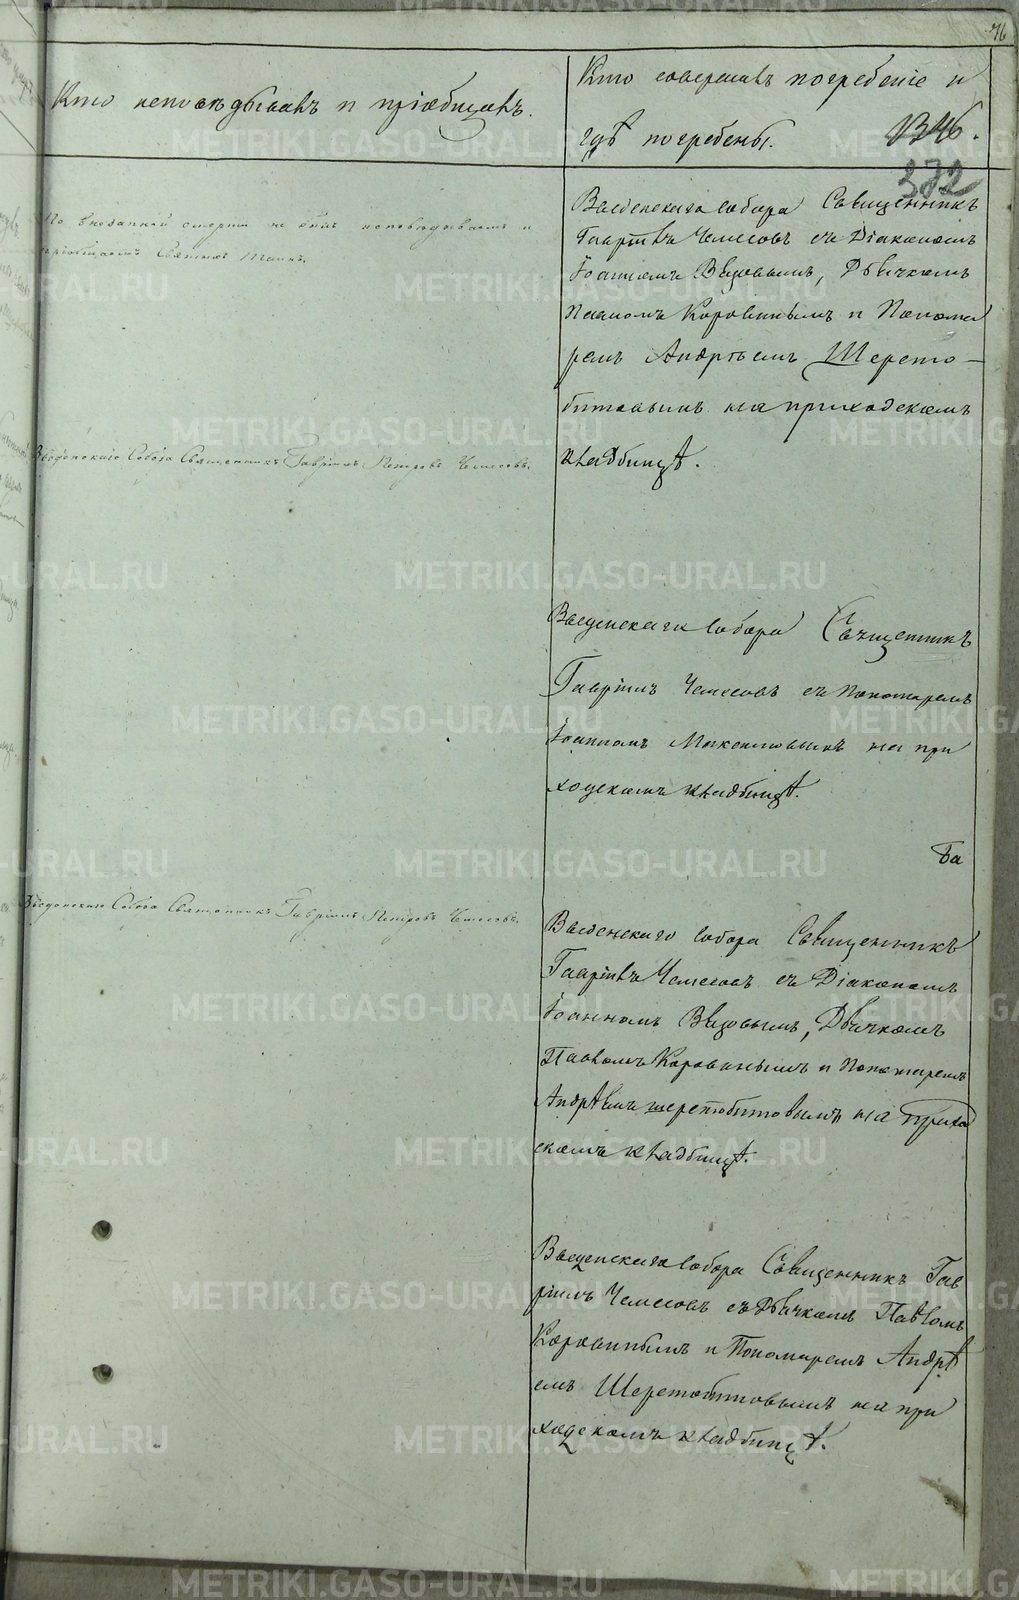 76
Кто исповѣдывалъ и пріобщалъ.
Кто совершалъ погребеніе и
гдѣ погребены.
1346.
372
По внезапной смерти не былъ исповѣдываемъ и
пріобщаемъ Святыхъ Таинъ.
Введенскаго Собора Священникъ Гавріилъ Петровъ Чемесовъ.
Введенскаго Собора Священникъ Гавріилъ Петровъ Чемесовъ.
Введенскаго собора Священникъ
Гавріилъ Чемесовъ съ Діакономъ
Іоанномъ Дьячкомъ
Павломъ Коровинымъ и Понома
ремъ Андреемъ Шерето-
битовымъ на приходскомъ
кладбищѣ.
Введенскаго собора Священникъ
Гавріилъ Чемесовъ съ Пономаремъ
Іоанномъ на при
ходскомъ кладбищѣ.
Ба
Введенскаго собора Священникъ
Гавріилъ Чемесовъ съ Діакономъ
Іоанномъ Дьячкомъ
Павломъ Коровинымъ и Пономаремъ
Андрѣемъ Шеретобитовымъ на прихо
скомъ кладбищѣ.
Введенскаго собора Священникъ Гав
ріилъ Чемесовъ съ Дьячкомъ Павломъ
Коровинымъ и Пономаремъ Андрѣ
емъ Шеретобитовымъ на при
ходскомъ кладбищѣ.
METRIKI.GASO-URAL.RU